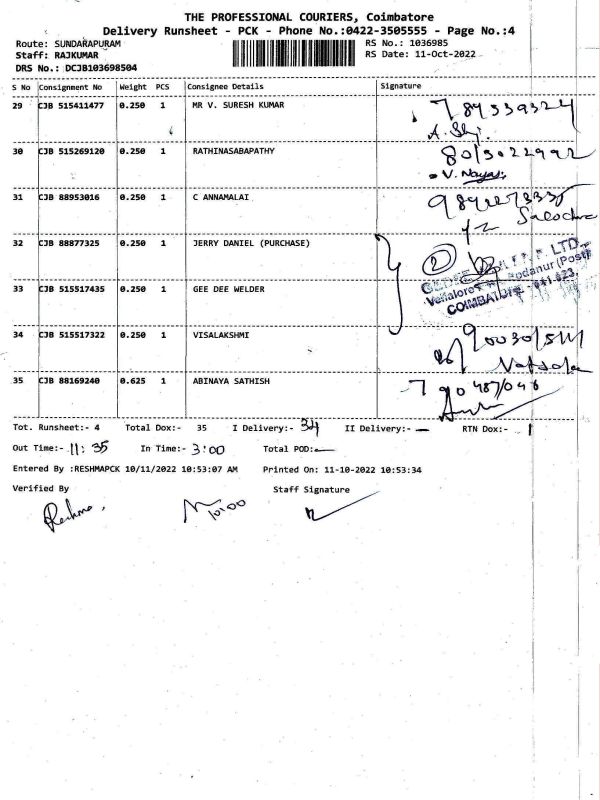 THE PROFESSIONAL COURIERS, Coimbatore
Delivery Runsheet - PCK - Phone No.:0422-3505555 - Page No.:4
Route: SUNDARAPURAM RS No.: 1036985
Staff: RAJKUMAR RS Date: 11-Oct-2022
DRS No.: DCJB103698504
S No Consignment No Weight PCS Consignee Details Signature
29 CJB 515411477 0.250 1 MR V. SURESH KUMAR
30 CJB 515269120 0.250 1 RATHINASABAPATHY 8015022992
31 CJB 88953016 0.250 1 C ANNAMALAI
32 CJB 88877325 0.250 1 JERRY DANIEL (PURCHASE) 2
33 CJB 515517435 0.250 1 GEE DEE WELDER
COIMBATORE - 641 023.
34 CJB 515517322 0.250 1 VISALAKSHMI
35 CJB 88169240 0.625 1 ABINAYA SATHISH
Tot. Runsheet:- 4 Total Dox:- 35 I Delivery:- 34 II Delivery:- — RTN Dox:- 1
Out Time:- 11:35 In Time:- 3:00 Total POD:-
Entered By :RESHMAPCK 10/11/2022 10:53:07 AM Printed On: 11-10-2022 10:53:34
Verified By Staff Signature
Reshma. 10:00